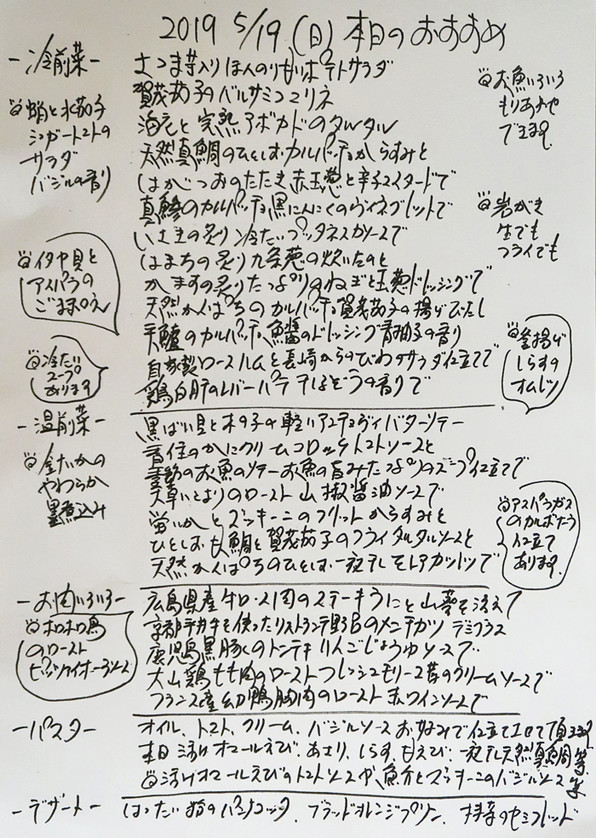 2019 5/19 (日) 本日のおすすめ
-冷前菜-
さつま芋入り ほんのり ポテトサラダ
賀茂茄子のバルサミコマリネ
完熟アボカドのタルタル
天然真鯛のひとしお カルパッチョ からすみと
はがつおのたたき 赤玉葱と辛子マスタードで
真鯵のカルパッチョ 黒にんにくのヴィネグレットで
いさきの炙り 冷たいプッタネスカソースで
はまちの炙り 九条葱の炊いたのと
かますの炙り たっぷりのねぎと玉葱ドレッシングで
天然かんぱちのカルパッチョ 賀茂茄子の揚げびたし
平鱸のカルパッチョ 魚醤のドレッシング 青柚子の香り
自家製ロースハムと長崎からのびわのサラダ仕立てで
鶏白肝のレバーパテ ぶどうの香りで
蛸と水茄子
シュガートマトの
サラダ
バジルの香り
イタヤ貝と
アスパラの
ごまあえ
冷たい
スープ
あります
お魚いろいろ
もりあわせ
できます。
岩がき
生でも
フライでも
釜揚げ
しらすの
オムレツ
-温前菜-
黒ばい貝と木の子の軽いアンチョヴィバターソテー
香住のかにクリームコロッケ トマトソースと
お魚のソテー お魚の旨みたっぷりのスープ仕立てで
天草いとよりのロースト 山椒醤油ソースで
蛍いかとズッキーニのフリット からすみと
ひとしお 真鯛と賀茂茄子のフライ タルタルソースと
天然かんぱちのひとしお 一夜干し レアカツレツで
やわらか
墨煮込み
アスパラガス
のかるぼなら
仕立て
あります。
-お肉いろいろ-
広島県産牛ロース肉のステーキ うにと山葵を添えて
京都平井牛を使ったリストランテ野呂のメンチカツ デミグラス
鹿児島黒豚くのトンテキ りんごじょうゆソースで
大山鶏もも肉のロースト フレッシュモリーユ茸のクリームソースで
フランス産幼鴨胸肉のロースト 赤ワインソースで
ホロホロ鳥
のロースト
ピッツァイオーラソース
-パスタ-
オイル、トマト、クリーム、バジルソース お好みで仕立てさせて頂きます
本日 活オマールえび、あさり、しらす、もえび、一夜干し天然真鯛 等
活オマールえびのトマトソースや、魚介とズッキーニのバジルソース 等
-デザート-
はったい粉のパンナコッタ、ブラッドオレンジプリン、抹茶のセミフレッド